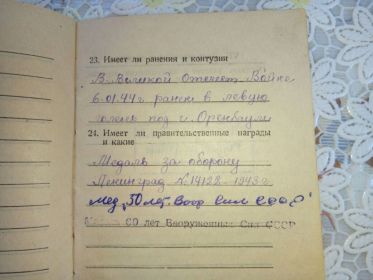 23. Имеет ли ранения и контузии
В Великой Отечест Войне
6.01.44 г ранен в левую
голень под г.
24. Имеет ли правительственные награды
и какие
Медаль за оборону
Ленинград № 14128 - 1943 г
мед „50 лет Воор Сил СССР"
60 лет Вооруженных Сил СССР